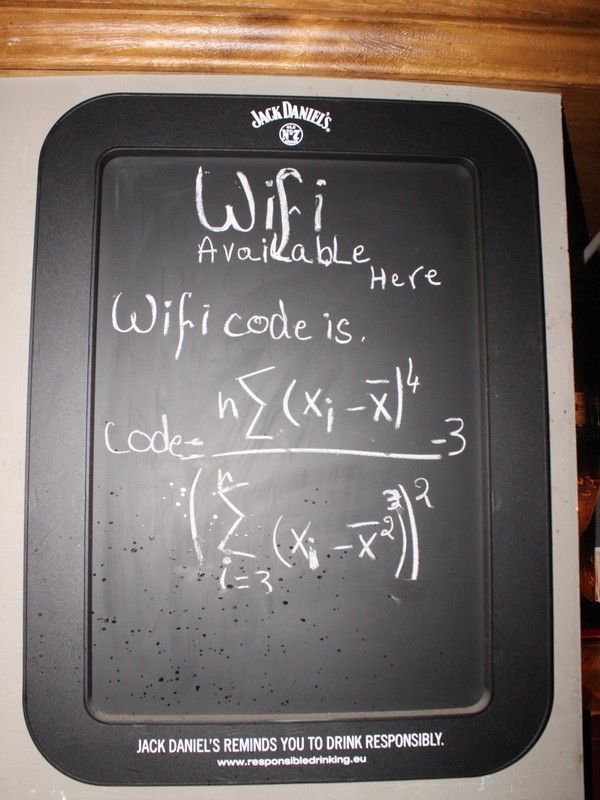 JACK DANIEL'S
OLD
Nº7
BRAND
Wifi
Available
Here
Wifi code is.
code = n∑(xi - x̄)⁴ / (∑ⁿᵢ₌₃ (xi - x̄²)³)² - 3
JACK DANIEL'S REMINDS YOU TO DRINK RESPONSIBLY.
www.responsibledrinking.eu